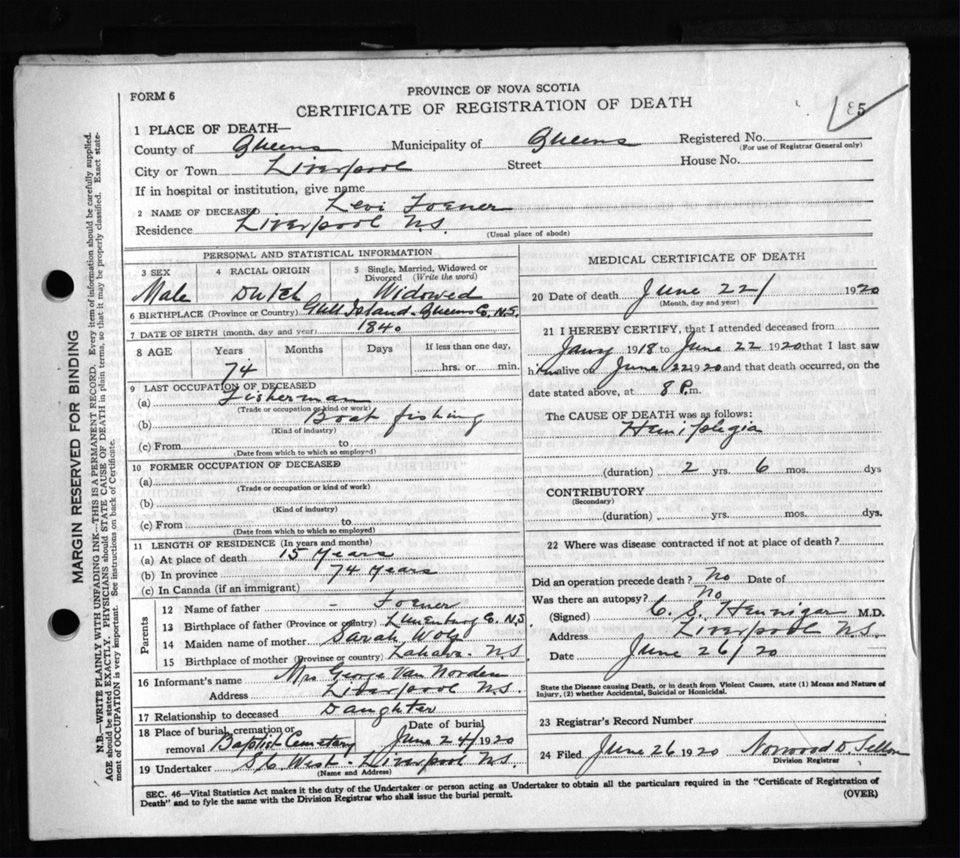 FORM 6
PROVINCE OF NOVA SCOTIA
CERTIFICATE OF REGISTRATION OF DEATH
85
1 PLACE OF DEATH—
County of Queens Municipality of Queens Registered No.
(For use of Registrar General only)
City or Town Liverpool Street House No.
If in hospital or institution, give name
2 NAME OF DECEASED Levi
Residence Liverpool N.S.
(Usual place of abode)
PERSONAL AND STATISTICAL INFORMATION
3 SEX 4 RACIAL ORIGIN 5 Single, Married, Widowed or Divorced (Write the word)
Male Dutch Widowed
6 BIRTHPLACE (Province or Country) Gull Island - Queens Co. N.S.
7 DATE OF BIRTH (month, day and year) 1840
8 AGE Years Months Days If less than one day,
74 hrs. or min.
9 LAST OCCUPATION OF DECEASED
(a) Fisherman
(Trade or occupation or kind or work)
(b) Boat fishing
(Kind of industry)
(c) From to
(Date from which to which so employed)
10 FORMER OCCUPATION OF DECEASED
(a)
(Trade or occupation or kind of work)
(b)
(Kind of industry)
(c) From to
(Date from which to which so employed)
11 LENGTH OF RESIDENCE (In years and months)
(a) At place of death 15 Years
(b) In province 74 Years
(c) In Canada (if an immigrant)
Parents
12 Name of father -
13 Birthplace of father (Province or country) Lunenburg Co. N.S.
14 Maiden name of mother Sarah
15 Birthplace of mother (Province or country) Lahave N.S.
16 Informant's name Mrs George Van Norden
Address Liverpool N.S.
17 Relationship to deceased Daughter
18 Place of burial, cremation or removal Baptist Cemetary Date of burial June 24/1920
19 Undertaker S.C. West - Liverpool N.S.
(Name and Address)
MEDICAL CERTIFICATE OF DEATH
20 Date of death June 22/ 1920
(Month, day and year)
21 I HEREBY CERTIFY, that I attended deceased from
1918 to June 22 1920 that I last saw
h alive on June 22 1920 and that death occurred, on the
date stated above, at 8 P.m.
The CAUSE OF DEATH was as follows:
Hemiplegia
(duration) 2 yrs. 6 mos. dys
CONTRIBUTORY
(Secondary)
(duration) yrs. mos. dys.
22 Where was disease contracted if not at place of death?
Did an operation precede death? No Date of
Was there an autopsy? No
(Signed) C. S. Hennigar M.D.
Address Liverpool N.S.
Date June 26/20
State the Disease causing Death, or in death from Violent Causes, state (1) Means and Nature of
Injury, (2) whether Accidental, Suicidal or Homicidal.
23 Registrar's Record Number
24 Filed June 26 1920 Norwood D.
Division Registrar
SEC. 46—Vital Statistics Act makes it the duty of the Undertaker or person acting as Undertaker to obtain all the particulars required in the "Certificate of Registration of
Death" and to fyle the same with the Division Registrar who shall issue the burial permit. (OVER)
MARGIN RESERVED FOR BINDING
N.B.—WRITE PLAINLY WITH UNFADING INK—THIS IS A PERMANENT RECORD. Every item of information should be carefully supplied.
AGE should be stated EXACTLY. PHYSICIANS should STATE CAUSE OF DEATH in plain terms, so that it may be properly classified. Exact state-
ment of OCCUPATION is very important. See instructions on back of Certificate.